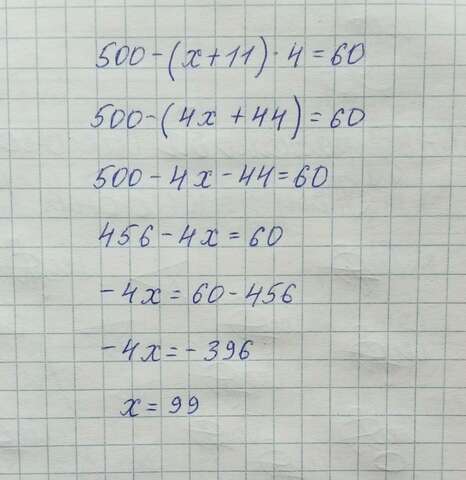 500-(x+11)·4=60
500-(4x+44)=60
500-4x-44=60
456-4x=60
-4x=60-456
-4x=-396
x=99